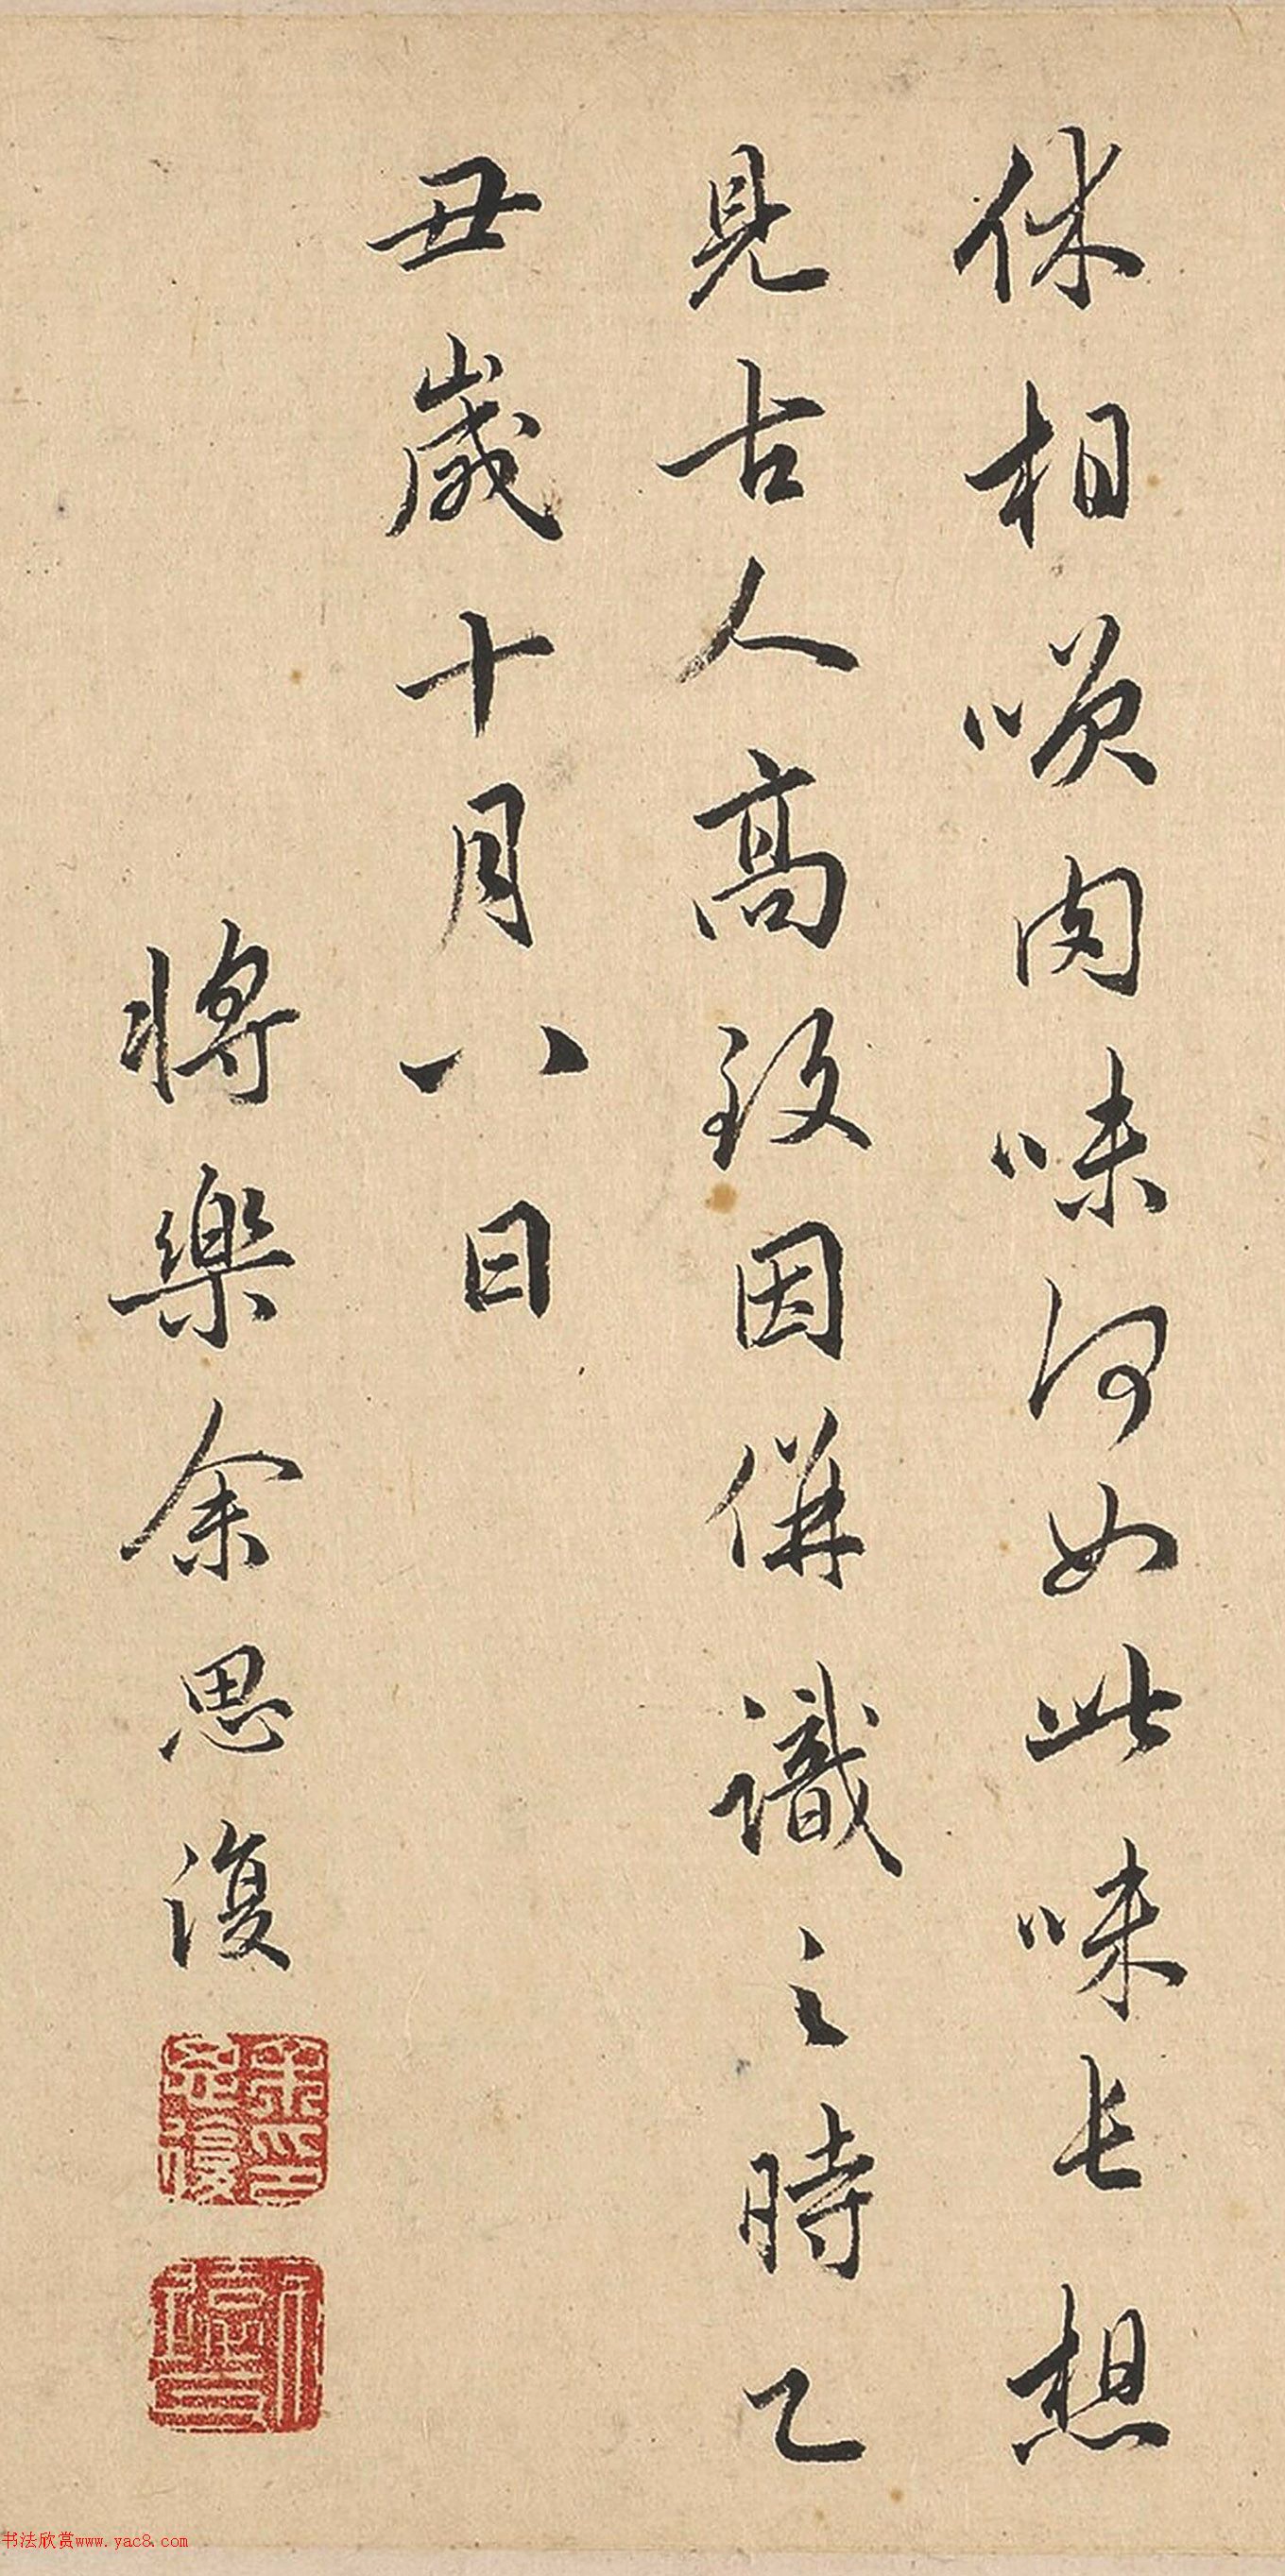 休相嘆肉味何如此味長想
見古人高致因併識之時乙
丑歲十月八日
將樂余思復
余思復印
书法欣赏www.yac8.com